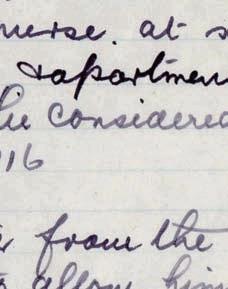 at
apartmen
considered
16
from the
allow him